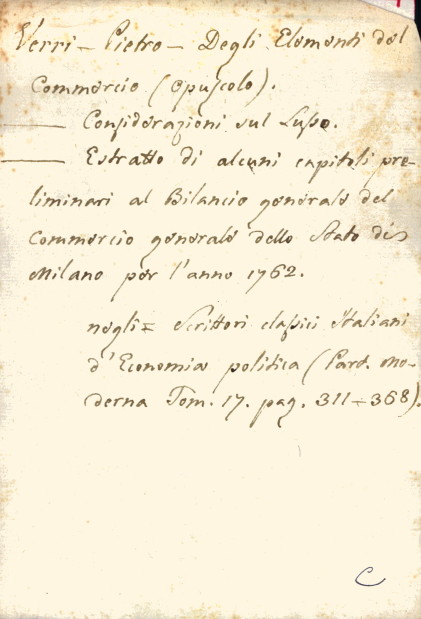 Verri - Pietro - Degli Elementi del
Commercio (opuscolo).
—— Considerazioni sul Lusso.
—— Estratto di alcuni capitoli pre-
liminari al Bilancio generale del
Commercio generale dello Stato di
Milano per l'anno 1762.
negli = Scrittori classici Italiani
d'Economia politica (Part. Mo-
derna Tom. 17. pag. 311-368).
C